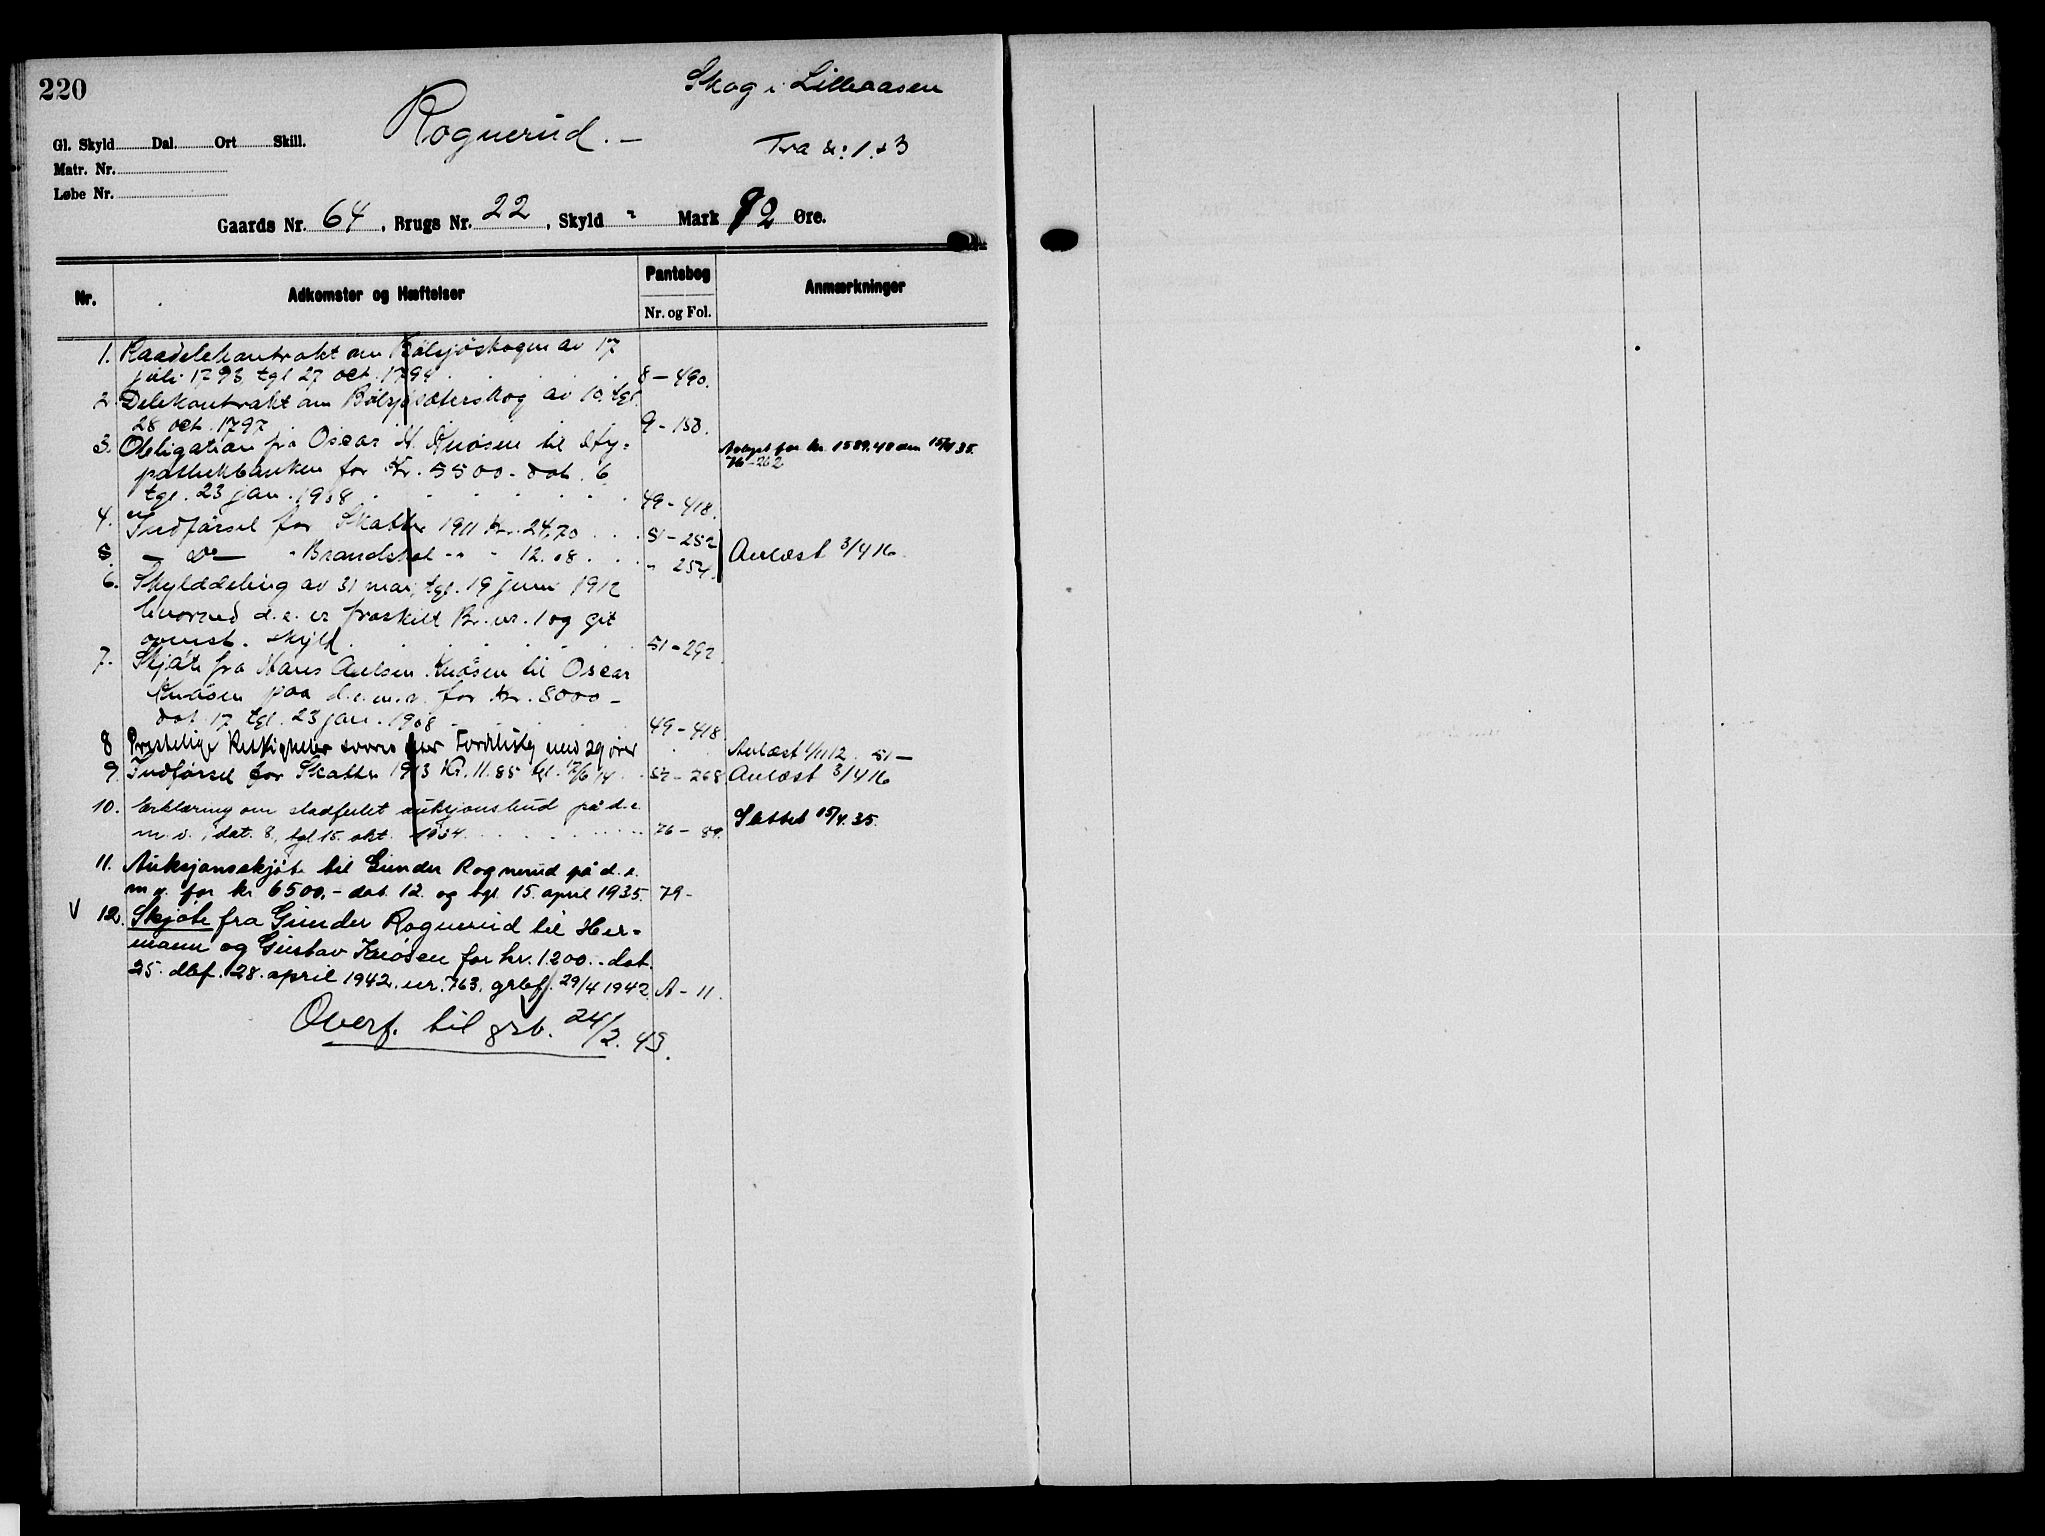 220
Skog i Lilleaasen
Rognerud. –
Fra Nr: 1. & 3
Gl. Skyld Dal. Ort Skill.
Matr. Nr.
Løbe Nr.
Gaards Nr. 64, Brugs Nr. 22, Skyld " Mark 92 Øre.
Nr. Adkomster og Hæftelser Pantebog Nr. og Fol. Anmærkninger
1. Raadelekontrakt om Bølsjøskogen av 17
juli 1793 tgl 27 oct. 1794 8 – 490.
2. Delekontrakt om Bølsjøsæterskog av 10. tgl.
28 oct. 1797 9 – 158.
3. Obligation fra Oscar H. Knösen til Hy=
pothekbanken for Kr. 5500 – dat. 6
tgl. 23 jan. 1908 49 – 418.
for kr. 1589.40 den 15/4 35.
76 – 262
4. Indførsel for Skatter 1911 Kr. 24.70 51 – 252
5. – Do – " Brandskat " " " 12.08 " 254. Avlæst 3/4 16
6. Skylddeling av 31 mai, tgl. 19 juni 1912
hvorved d.e. er fraskilt Br. nr. 1 og git
ovenst. skyld. 51 – 292
7. Skjøte fra Hans Aulsen Knösen til Oscar
Knösen paa d.e.m.v. for Kr. 8000 –
dat. 17 tgl. 23 jan. 1908 49 – 418
8 Præstelige Rettigheter svares efter Fordeling med 29 ører Avlæst 1/11 12. 51 –
9. Indførsel for Skatter 1913 Kr. 11.85 tgl. 17/6 14 52 – 268 Avlæst 3/4 16
10. Erklæring om stadfestet auksjonsbud på d.e.
m.v., dat. 8, tgl 15. okt. 1934 76 – 89. Slettet 15/4. 35.
11. Auksjonsskjøte til Gunder Rognerud på d.e.
m.v. for kr 6500,– dat. 12. og tgl. 15. april 1935. 79 –
V 12. Skjøte fra Gunder Rognerud til Her=
mann og Gustav Knösen for kr. 1200.- dat.
25. dbf. 28. april 1942. nr. 763. grbf. 29/4 1942 A – 11.
Overf. til grb. 24/2. 43.